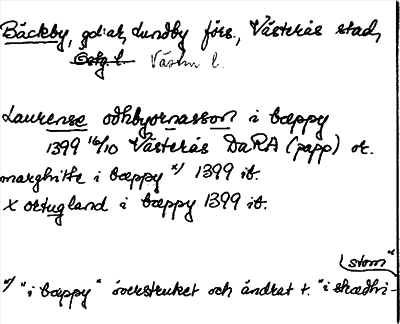 Bäckby, gd:ar, Lundby förs., Västerås stad,
Östg. l. Västm l.
Laurense odhbyornasson i bæppy
1399 16/10 Västerås DaRA (papp) or.
marghitte i bæppy x/ 1399 ib.
x ortugland i bæppy 1399 ib.
stom"
x/ "i bæppy" överstruket och ändrat t. "i skædhvi-